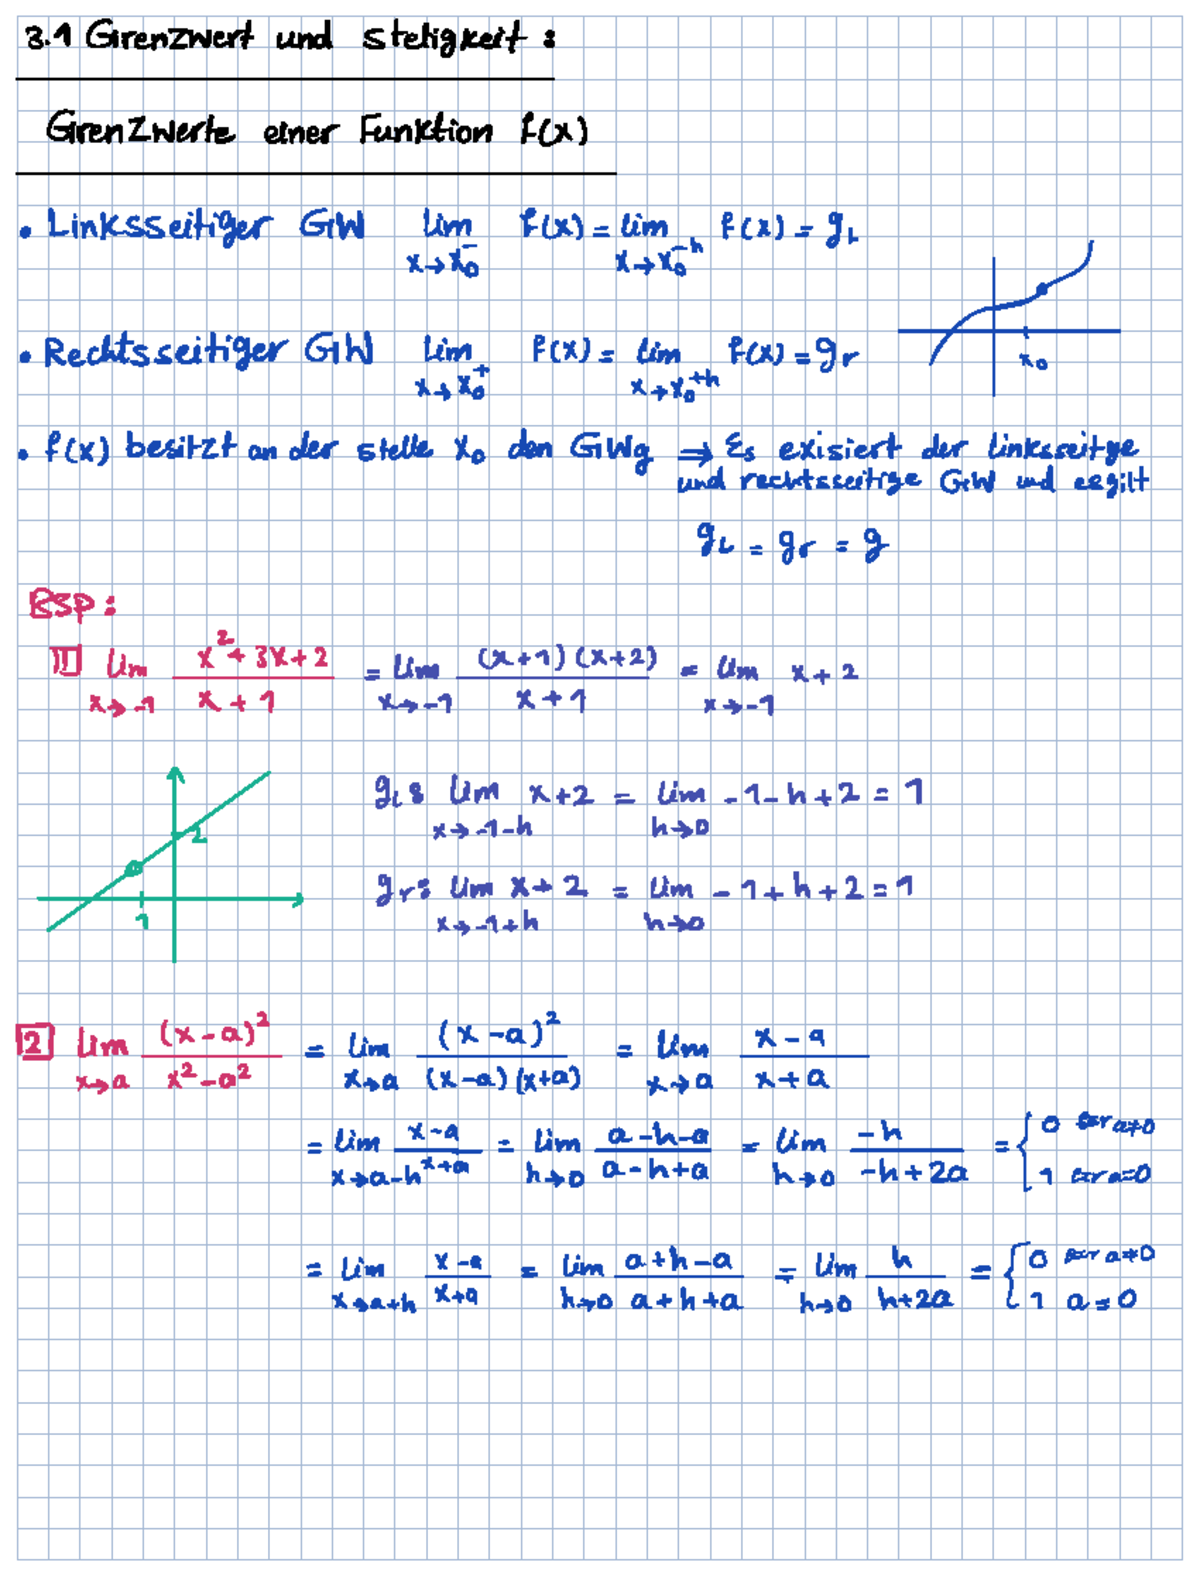 3.1 Grenzwert und Stetigkeit :
Grenzwerte einer Funktion f(x)
• Linksseitiger GW lim x→x₀⁻ f(x) = lim x→x₀⁻ʰ f(x) = gL
x₀
• Rechtsseitiger GW lim x→x₀⁺ f(x) = lim x→x₀⁺ʰ f(x) = gr
• f(x) besitzt an der stelle x₀ den GWg ⇒ Es exisiert der linksseitge
und rechtsseitige GW und esgilt
gL = gr = g
BSP:
1 lim x→-1 (x²+3x+2)/(x+1) = lim x→-1 ((x+1)(x+2))/(x+1) = lim x→-1 x+2
2
1
gL: lim x→-1-h x+2 = lim h→0 -1-h+2 = 1
gr: lim x→-1+h x+2 = lim h→0 -1+h+2 = 1
2 lim x→a (x-a)²/(x²-a²) = lim x→a (x-a)²/((x-a)(x+a)) = lim x→a (x-a)/(x+a)
= lim x→a-h (x-a)/(x+a) = lim h→0 (a-h-a)/(a-h+a) = lim h→0 (-h)/(-h+2a) = { 0 für a≠0
1 für a=0
= lim x→a+h (x-a)/(x+a) = lim h→0 (a+h-a)/(a+h+a) = lim h→0 h/(h+2a) = { 0 für a≠0
1 a=0